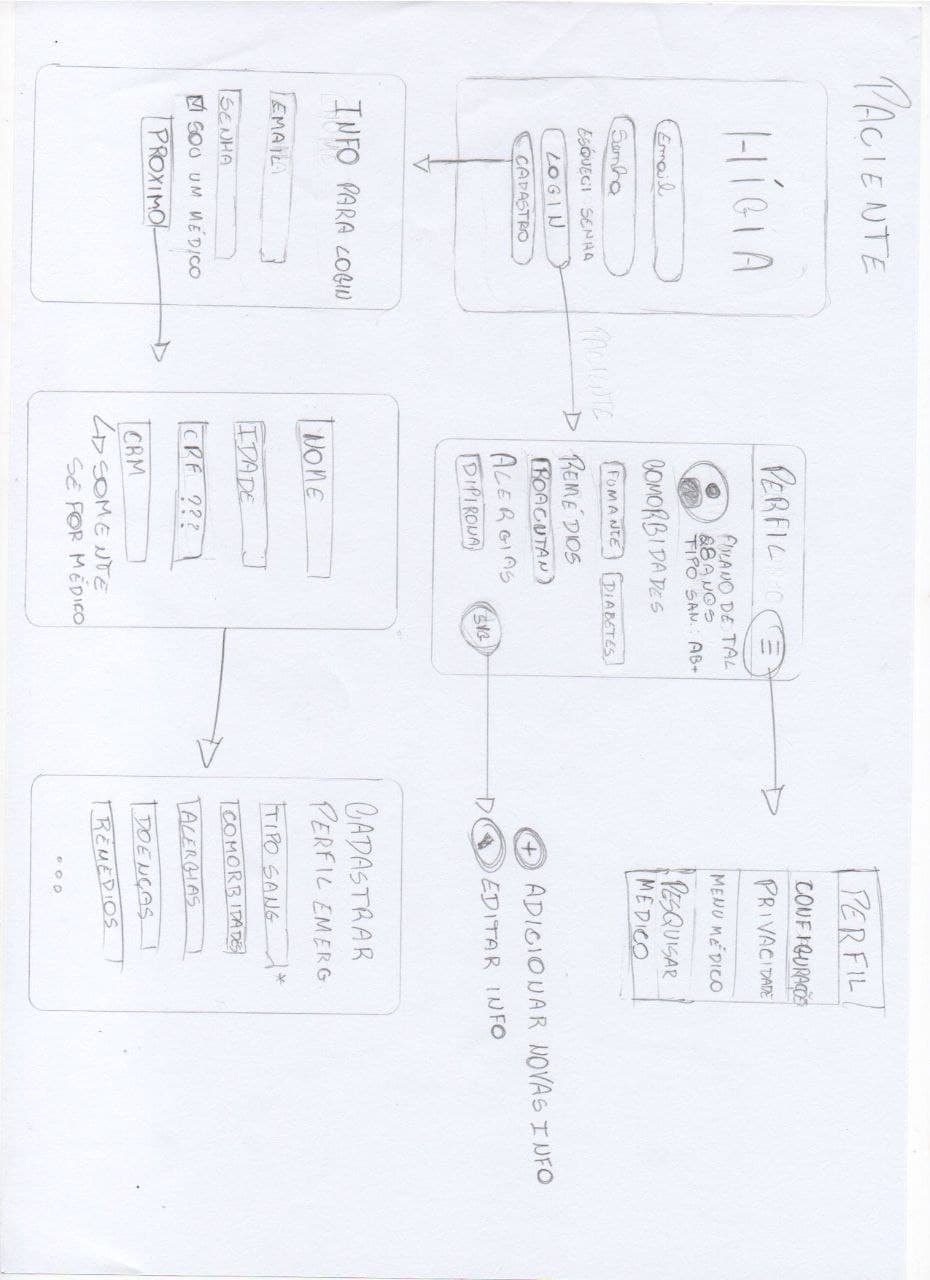 PACIENTE
HÍGIA
Email
Senha
ESQUECI SENHA
LOGIN
CADASTRO
PACIENTE
PERFIL
FULANO DE TAL
28 ANOS
TIPO SAN.: AB+
COMORBIDADES
FUMANTE
DIABETES
REMÉDIOS
ROACUTAN
ALERGIAS
DIPIRONA
SVG
PERFIL
CONFIGURAÇÕES
PRIVACIDADE
MENU MÉDICO
PESQUISAR
MEDICO
+ ADICIONAR NOVAS INFO
EDITAR INFO
INFO PARA LOGIN
EMAIL
SENHA
SOU UM MÉDICO
PROXIMO
NOME
IDADE
CPF ???
CRM
SOMENTE
SE FOR MÉDICO
CADASTRAR
PERFIL EMERG
TIPO SANG *
COMORBIDADES
ALERGIAS
DOENÇAS
REMEDIOS
...